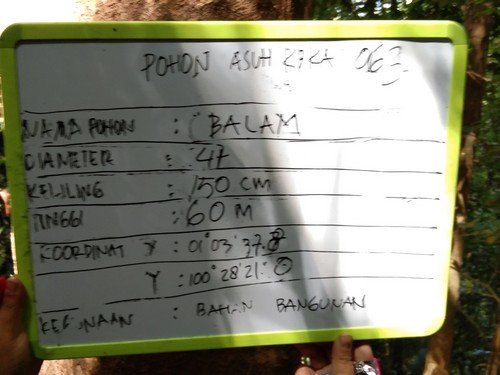 POHON ASUH KAKA 063
NAMA POHON : BALAM
DIAMETER : 47
KELILING : 150 CM
TINGGI : 60 M
KOORDINAT X : 01° 03' 37.8
Y : 100° 28' 21.0
KEGUNAAN : BAHAN BANGUNAN